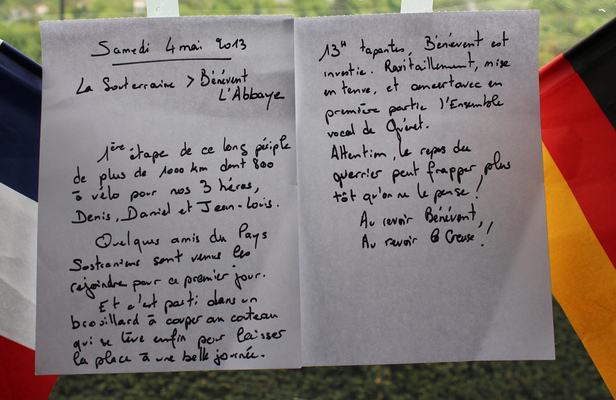 Samedi 4 mai 2013
La Souterraine > Bénévent
L'Abbaye
1ère étape de ce long périple
de plus de 1000 km dont 800
à vélo pour nos 3 héros,
Denis, Daniel et Jean-Louis.
Quelques amis du Pays
Sostranien sont venus les
rejoindre pour ce premier jour.
Et c'est parti dans un
brouillard à couper au couteau
qui se lève enfin pour laisser
la place à une belle journée.
13H tapantes, Bénévent est
investie. Ravitaillement, mise
en tenue, et concert avec en
première partie l'Ensemble
vocal de Guéret.
Attention, le repos du
guerrier peut frapper plus
tôt qu'on ne le pense !
Au revoir Bénévent,
Au revoir la Creuse !